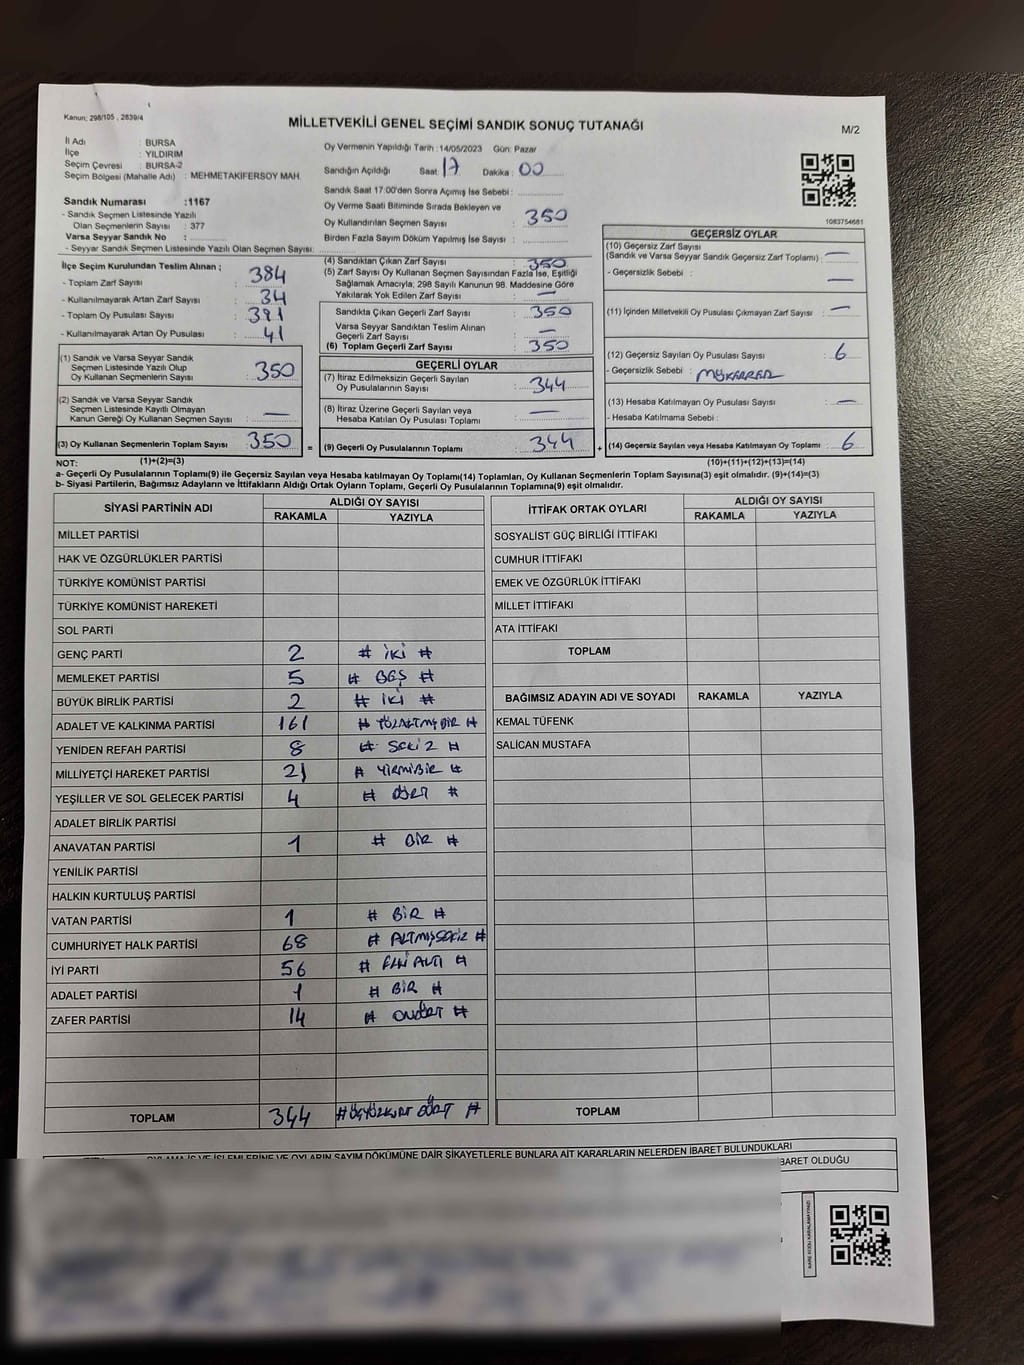 Kanun; 298/105 , 2839/4
MİLLETVEKİLİ GENEL SEÇİMİ SANDIK SONUÇ TUTANAĞI
M/2
İl Adı : BURSA
İlçe : YILDIRIM
Seçim Çevresi : BURSA-2
Seçim Bölgesi (Mahalle Adı) : MEHMETAKİFERSOY MAH.
Sandık Numarası :1167
- Sandık Seçmen Listesinde Yazılı
Olan Seçmenlerin Sayısı : 377
Varsa Seyyar Sandık No :
- Seyyar Sandık Seçmen Listesinde Yazılı Olan Seçmen Sayısı:
Oy Vermenin Yapıldığı Tarih : 14/05/2023 Gün: Pazar
Sandığın Açıldığı Saat : 17 Dakika : 00
Sandık Saat 17.00'den Sonra Açımış İse Sebebi :
Oy Verme Saati Bitiminde Sırada Bekleyen ve
Oy Kullandırılan Seçmen Sayısı : 350
Birden Fazla Sayım Döküm Yapılmış İse Sayısı :
1083754681
İlçe Seçim Kurulundan Teslim Alınan ;
- Toplam Zarf Sayısı : 384
- Kullanılmayarak Artan Zarf Sayısı : 34
- Toplam Oy Pusulası Sayısı : 391
- Kullanılmayarak Artan Oy Pusulası : 41
(1) Sandık ve Varsa Seyyar Sandık
Seçmen Listesinde Yazılı Olup
Oy Kullanan Seçmenlerin Sayısı : 350
(2) Sandık ve Varsa Seyyar Sandık
Seçmen Listesinde Kayıtlı Olmayan
Kanun Gereği Oy Kullanan Seçmen Sayısı : —
(3) Oy Kullanan Seçmenlerin Toplam Sayısı : 350 =
(4) Sandıktan Çıkan Zarf Sayısı : 350
(5) Zarf Sayısı Oy Kullanan Seçmen Sayısından Fazla İse, Eşitliği
Sağlamak Amacıyla; 298 Sayılı Kanunun 98. Maddesine Göre
Yakılarak Yok Edilen Zarf Sayısı : —
Sandıkta Çıkan Geçerli Zarf Sayısı : 350
Varsa Seyyar Sandıktan Teslim Alınan
Geçerli Zarf Sayısı : —
(6) Toplam Geçerli Zarf Sayısı : 350
GEÇERLİ OYLAR
(7) İtiraz Edilmeksizin Geçerli Sayılan
Oy Pusulalarının Sayısı : 344
(8) İtiraz Üzerine Geçerli Sayılan veya
Hesaba Katılan Oy Pusulaları Toplamı : —
(9) Geçerli Oy Pusulalarının Toplamı : 344 +
GEÇERSİZ OYLAR
(10) Geçersiz Zarf Sayısı
(Sandık ve Varsa Seyyar Sandık Geçersiz Zarf Toplamı) : —
- Geçersizlik Sebebi : —
(11) İçinden Milletvekili Oy Pusulası Çıkmayan Zarf Sayısı : —
(12) Geçersiz Sayılan Oy Pusulası Sayısı : 6
- Geçersizlik Sebebi : MÜKERRER
(13) Hesaba Katılmayan Oy Pusulası Sayısı : —
- Hesaba Katılmama Sebebi :
(14) Geçersiz Sayılan veya Hesaba Katılmayan Oy Toplamı : 6
NOT: (1)+(2)=(3) (10)+(11)+(12)+(13)=(14)
a- Geçerli Oy Pusulalarının Toplamı(9) ile Geçersiz Sayılan veya Hesaba katılmayan Oy Toplamı(14) Toplamları, Oy Kullanan Seçmenlerin Toplam Sayısına(3) eşit olmalıdır. (9)+(14)=(3)
b- Siyasi Partilerin, Bağımsız Adayların ve İttifakların Aldığı Ortak Oyların Toplamı, Geçerli Oy Pusulalarının Toplamına(9) eşit olmalıdır.
SİYASİ PARTİNİN ADI ALDIĞI OY SAYISI
RAKAMLA YAZIYLA
MİLLET PARTİSİ
HAK VE ÖZGÜRLÜKLER PARTİSİ
TÜRKİYE KOMÜNİST PARTİSİ
TÜRKİYE KOMÜNİST HAREKETİ
SOL PARTİ
GENÇ PARTİ 2 # İKİ #
MEMLEKET PARTİSİ 5 # BEŞ #
BÜYÜK BİRLİK PARTİSİ 2 # İKİ #
ADALET VE KALKINMA PARTİSİ 161 # YÜZALTMIŞBİR #
YENİDEN REFAH PARTİSİ 8 # SEKİZ #
MİLLİYETÇİ HAREKET PARTİSİ 21 # YİRMİBİR #
YEŞİLLER VE SOL GELECEK PARTİSİ 4 # DÖRT #
ADALET BİRLİK PARTİSİ
ANAVATAN PARTİSİ 1 # BİR #
YENİLİK PARTİSİ
HALKIN KURTULUŞ PARTİSİ
VATAN PARTİSİ 1 # BİR #
CUMHURİYET HALK PARTİSİ 68 # ALTMIŞSEKİZ #
İYİ PARTİ 56 # ELLİ ALTI #
ADALET PARTİSİ 1 # BİR #
ZAFER PARTİSİ 14 # ONDÖRT #
TOPLAM 344 # ÜÇYÜZKIRT DÖRT #
İTTİFAK ORTAK OYLARI ALDIĞI OY SAYISI
RAKAMLA YAZIYLA
SOSYALİST GÜÇ BİRLİĞİ İTTİFAKI
CUMHUR İTTİFAKI
EMEK VE ÖZGÜRLÜK İTTİFAKI
MİLLET İTTİFAKI
ATA İTTİFAKI
TOPLAM
BAĞIMSIZ ADAYIN ADI VE SOYADI RAKAMLA YAZIYLA
KEMAL TÜFENK
SALİCAN MUSTAFA
TOPLAM
OYLAMA İŞ VE İŞLEMLERİNE VE OYLARIN SAYIM DÖKÜMÜNE DAİR ŞİKAYETLERLE BUNLARA AİT KARARLARIN NELERDEN İBARET BULUNDUKLARI
BARET OLDUĞU
KARE KODU KARALAMAYINIZ!